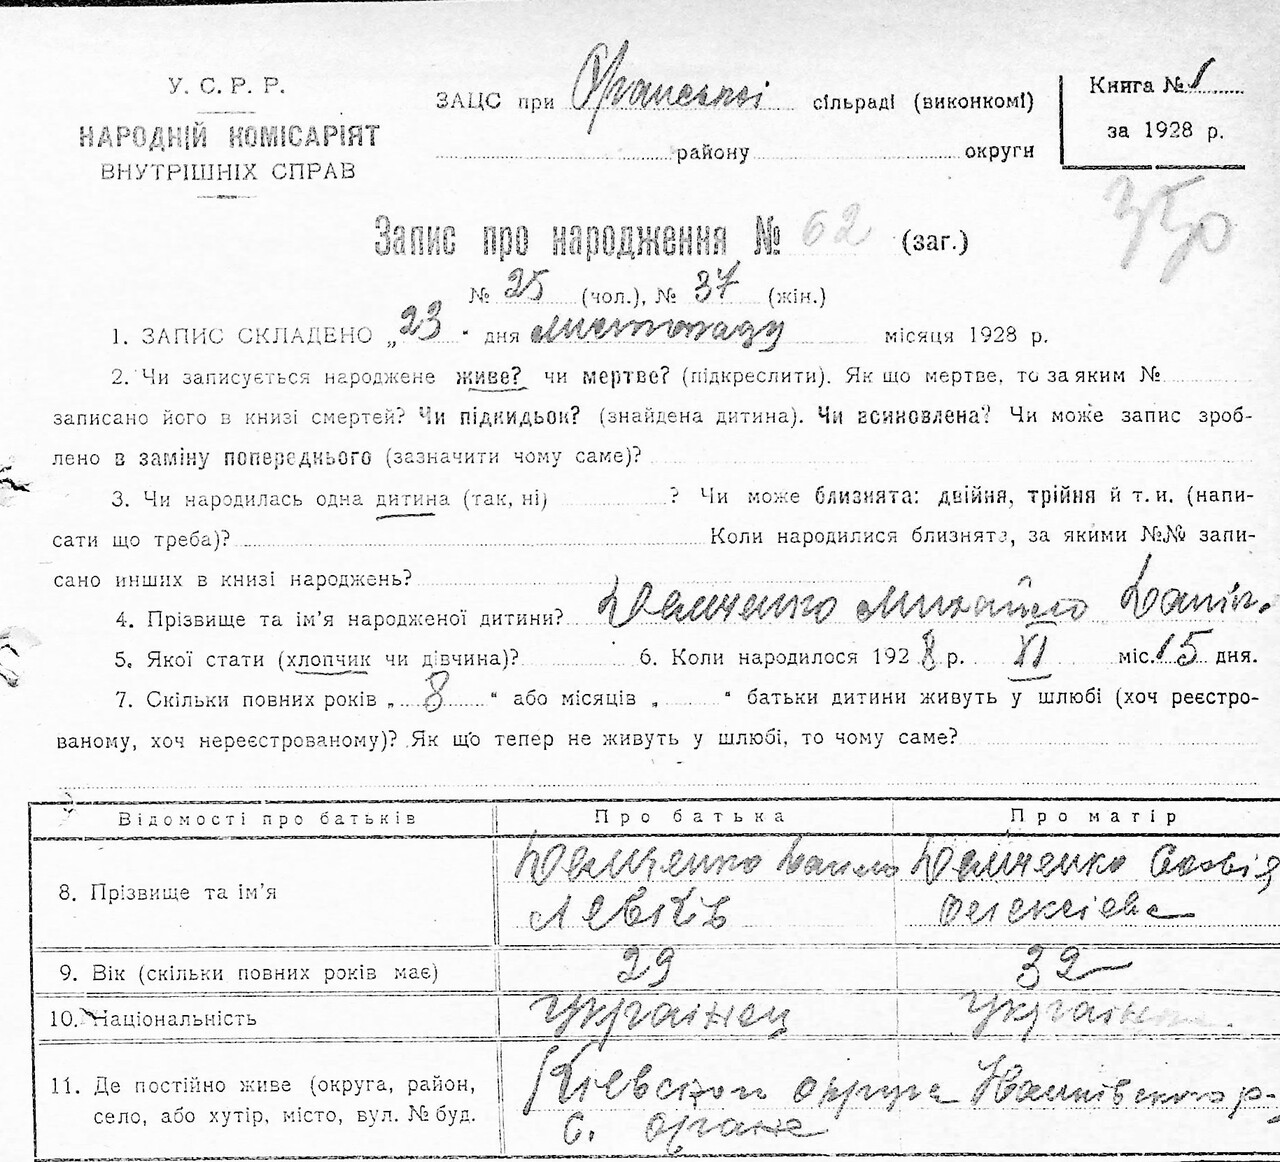 У. С. Р. Р.
НАРОДНІЙ КОМІСАРІЯТ
ВНУТРІШНІХ СПРАВ
ЗАЦС при Органській сільраді (виконкомі)
району округи
Книга № 1
за 1928 р.
350
Запис про народження № 62 (заг.)
№ 25 (чол.), № 37 (жін.)
1. ЗАПИС СКЛАДЕНО „23" дня листопаду місяця 1928 р.
2. Чи записується народжене живе? чи мертве? (підкреслити). Як що мертве, то за яким №
записано його в книзі смертей? Чи підкидьок? (знайдена дитина). Чи всиновлена? Чи може запис зроб-
лено в заміну попереднього (зазначити чому саме)?
3. Чи народилась одна дитина (так, ні) ? Чи може близнята: двійня, трійня й т. и. (напи-
сати що треба)? Коли народилися близнята, за якими №№ запи-
сано инших в книзі народжень?
4. Прізвище та ім'я народженої дитини? Демченко Михайло Даніл.
5. Якої стати (хлопчик чи дівчина)? 6. Коли народилося 1928 р. XI міс. 15 дня.
7. Скільки повних років „8" або місяців „ " батьки дитини живуть у шлюбі (хоч реєстро-
ваному, хоч нереєстрованому)? Як що тепер не живуть у шлюбі, то чому саме?
Відомості про батьків Про батька Про матір
8. Прізвище та ім'я Демченко Данило Левків Демченко Софія Олексієва
9. Вік (скільки повних років має) 29 32
10. Національність Українец Українка
11. Де постійно живе (округа, район, Київской округа р-
село, або хутір, місто, вул. № буд. с. Оране